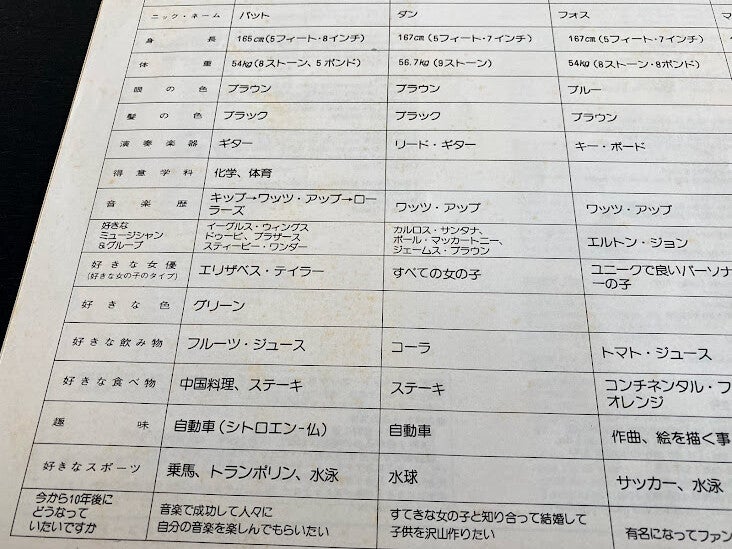 ニック・ネーム パット ダン フォス マ
身長 165cm(5フィート・8インチ) 167cm(5フィート・7インチ) 167cm(5フィート・7インチ)
体重 54kg(8ストーン、5ポンド) 56.7kg(9ストーン) 54kg(8ストーン・8ポンド)
眼の色 ブラウン ブラウン ブルー
髪の色 ブラック ブラック ブラウン
演奏楽器 ギター リード・ギター キー・ボード
得意学科 化学、体育
音楽歴 キップ→ワッツ・アップ→ロー
ラーズ ワッツ・アップ ワッツ・アップ
好きな
ミュージシャン
&グループ イーグルス・ウィングス
ドゥービ、ブラザース
スティービー・ワンダー カルロス・サンタナ、
ポール・マッカートニー、
ジェームス・ブラウン エルトン・ジョン
好きな女優
(好きな女の子のタイプ) エリザベス・テイラー すべての女の子 ユニークで良いパーソナ
ーの子
好きな色 グリーン
好きな飲み物 フルーツ・ジュース コーラ トマト・ジュース
好きな食べ物 中国料理、ステーキ ステーキ コンチネンタル・フ
オレンジ
趣味 自動車(シトロエン-仏) 自動車 作曲、絵を描く事
好きなスポーツ 乗馬、トランポリン、水泳 水球 サッカー、水泳
今から10年後に
どうなって
いたいですか 音楽で成功して人々に
自分の音楽を楽しんでもらいたい すてきな女の子と知り合って結婚して
子供を沢山作りたい 有名になってファン